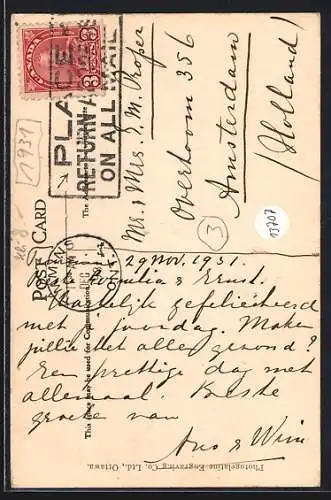 CANADA
3 CENTS 3
PLACE
RETURN ADDRESS
ON ALL MAIL
1931
POST CARD
The Address
This space may be used for Communications
ONT.
DEC
Mr. & Mrs. J. M. Prosper
Overtoom 356
Amsterdam
(Holland)
3
13707
29 Nov. 1931.
& Ernst.
Hartelijk gefeliciteerd
met jaardag. Maken
jullie het alles gezond?
Een prettige dag met
allemaal. Beste
groete van
Ans & Wim
Photogelatine Engraving Co. Ltd., Ottawa.